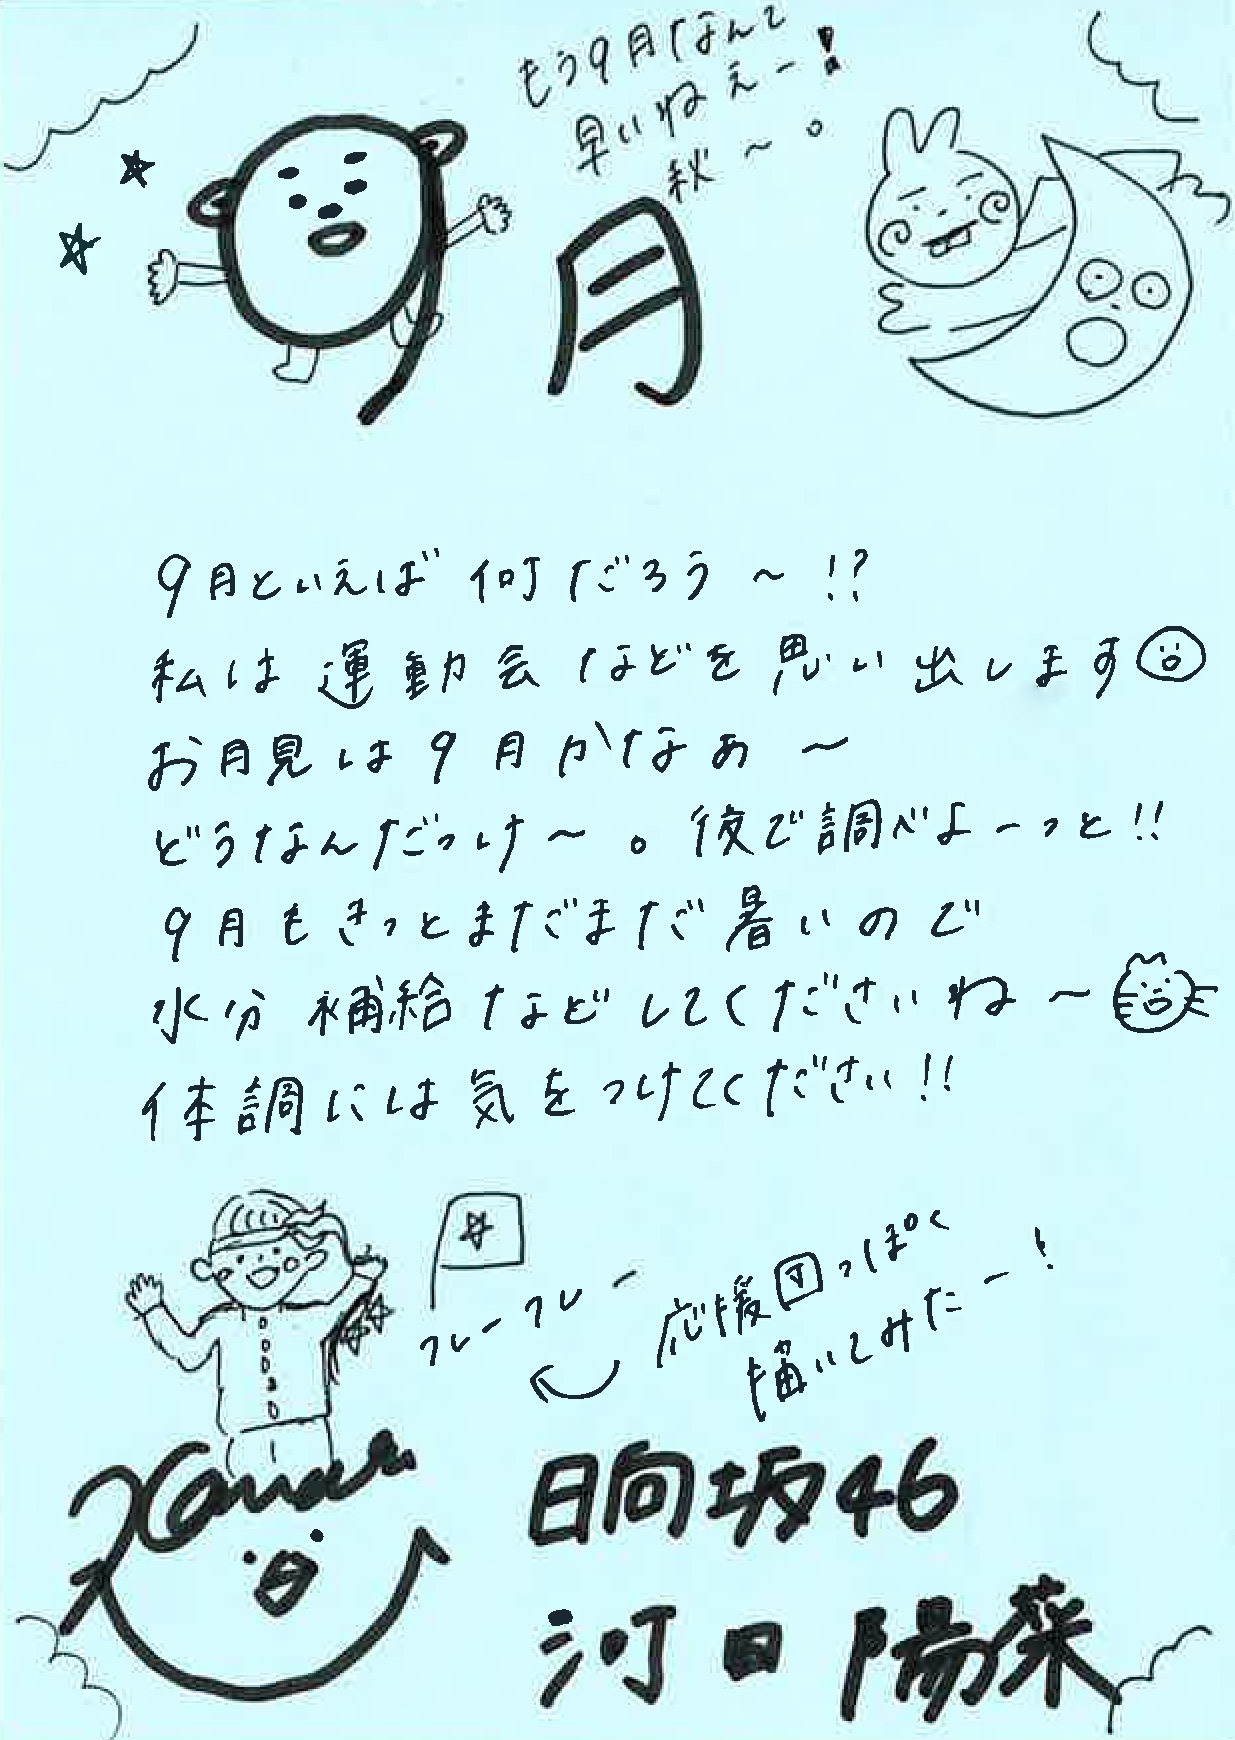 もう9月なんて
早いねぇー!
秋〜。
9月
9月といえば何だろう〜!?
私は運動会などを思い出します
お月見は9月かなぁ〜
どうなんだっけ〜。後で調べよーっと!!
9月もきっとまだまだ暑いので
水分補給などしてくださいね〜
体調には気をつけてください!!
フレーフレー
応援団っぽく
描いてみたー!
Kanaru
日向坂46
河田陽菜